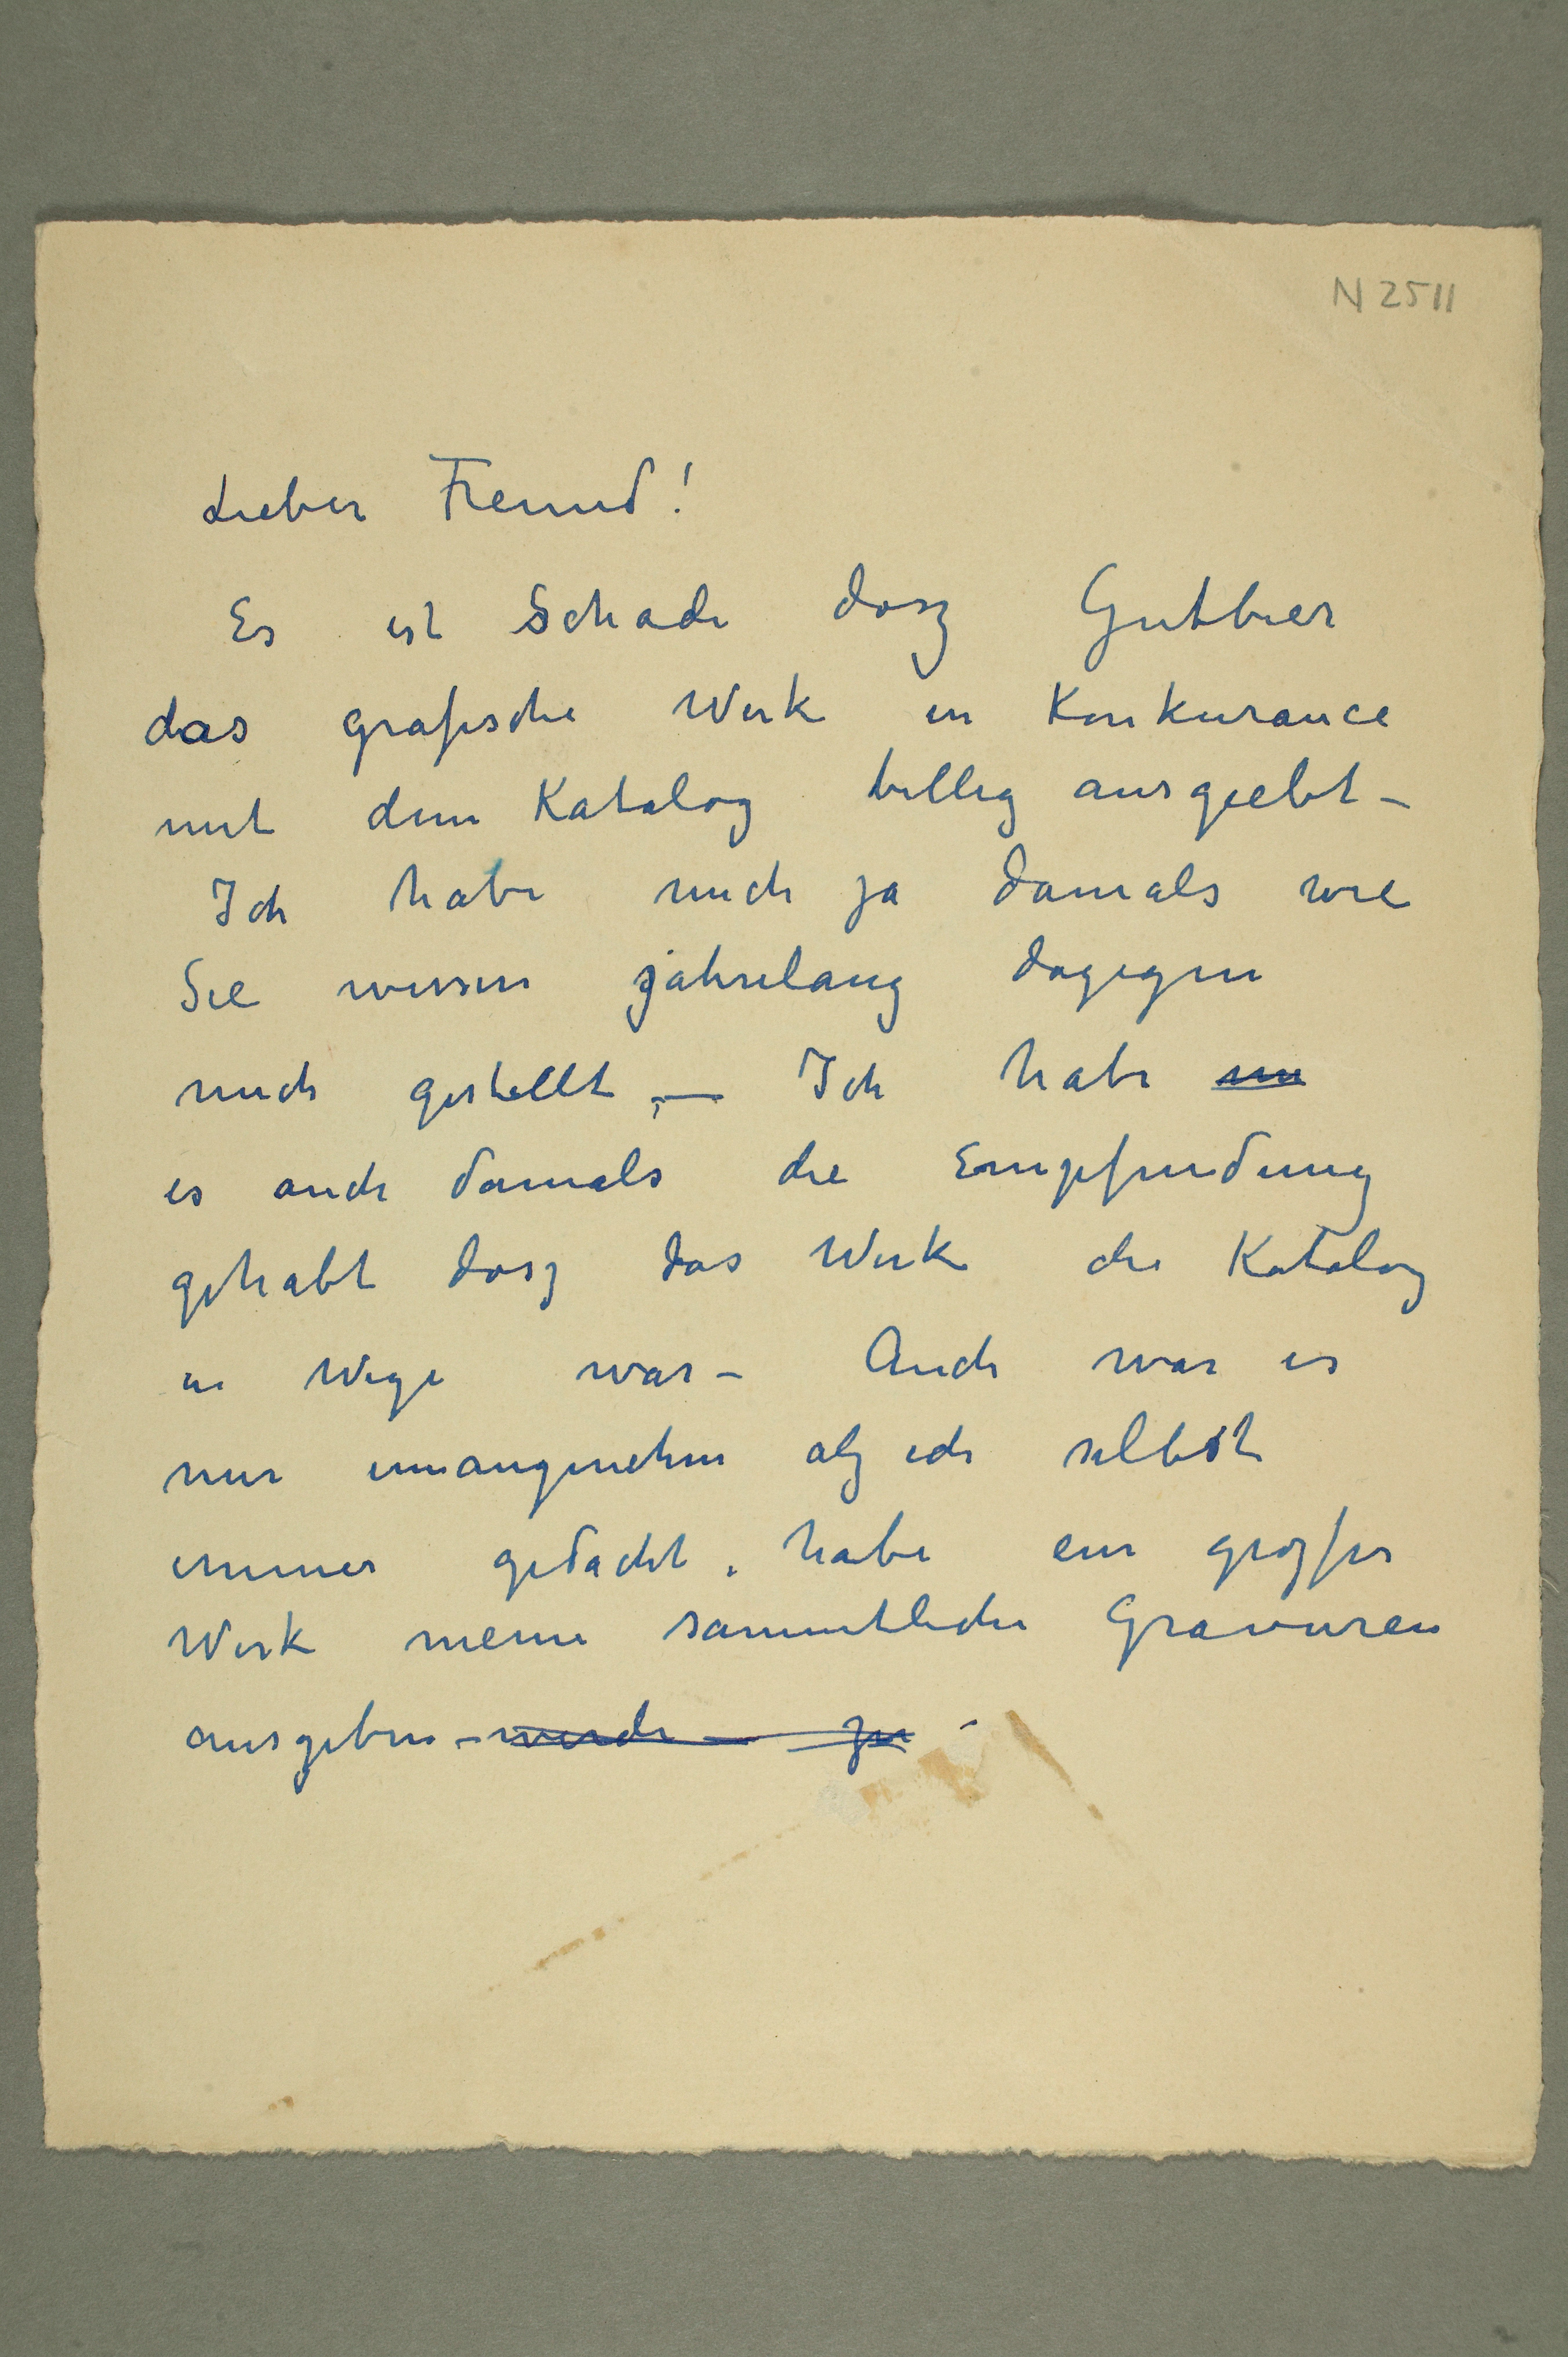 N 2511
Lieber Freund!
Es ist Schade dasz Gutbier
das grafische Werk in Konkurance
mit dem Katalog billig ausgiebt –
Ich habe mich ja damals wie
Sie wissen jahrelang dagegen
mich gestellt, – Ich habe
es auch damals die Empfindung
gehabt dasz das Werk die Katalog
in Wege war – Auch war es
mir unangenehm als ich selbst
immer gedacht habe ein groszes
Werk meine sammtliche Gravuren
ausgeben – werde – zu –